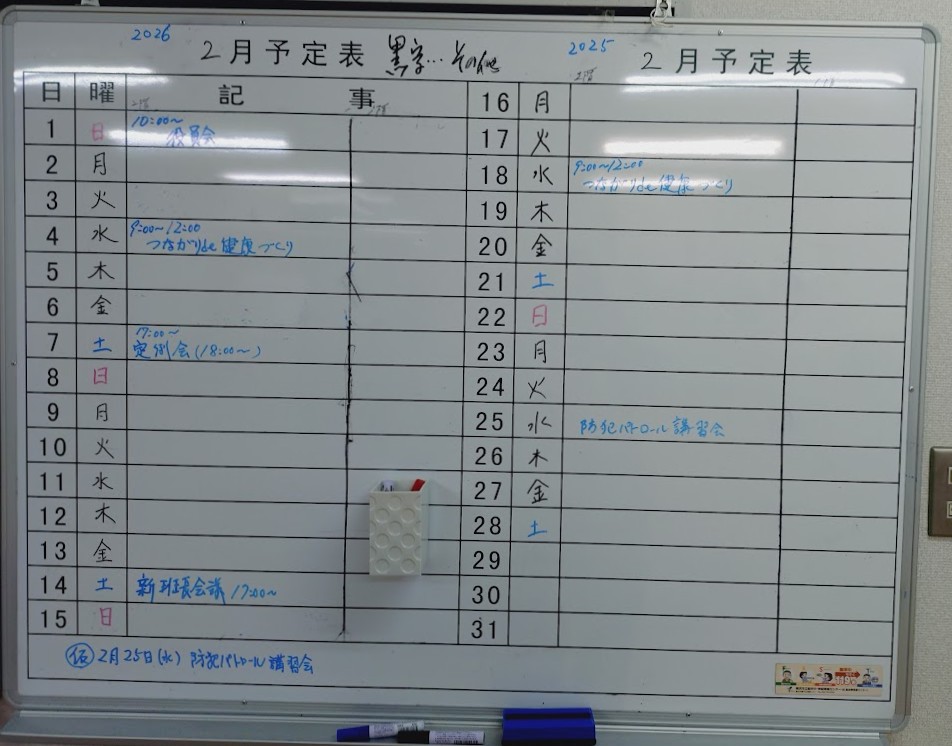 2026 2月予定表 黒字…その他 2025 2月予定表
日 曜 記事
1 日 10:00～
役員会
2 月
3 火
4 水 9:00～12:00
つながりde健康づくり
5 木
6 金
7 土 17:00～
定例会(18:00～)
8 日
9 月
10 火
11 水
12 木
13 金
14 土 新班長会議 17:00～
15 日
16 月
17 火
18 水 9:00～12:00
つながりde健康づくり
19 木
20 金
21 土
22 日
23 月
24 火
25 水 防犯パトロール講習会
26 木
27 金
28 土
29
30
31
仮 2月25日(水) 防犯パトロール講習会